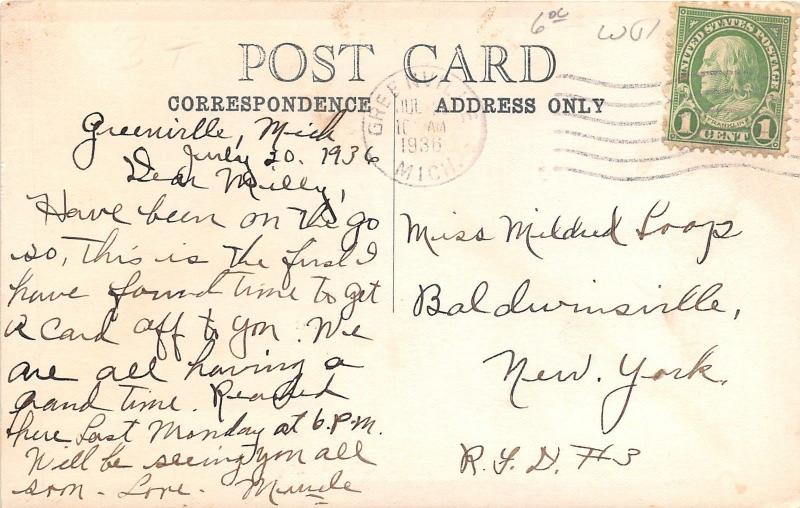 6oc
POST CARD
CORRESPONDENCE
ADDRESS ONLY
UNITED STATES POSTAGE
FRANKLIN
1 CENT 1
GREENVILLE
JUL
AM
1936
MICH.
Greenville, Mich
July 20. 1936
Dear Milly,
Have been on the go
so, this is the first I
have found time to get
a card off to you. We
are all having a
grand time. Reached
here Last Monday at 6.P.M.
Will be seeing you all
soon - Love -
Miss Mildred Loop
Baldwinsville,
New. York.
R.F.D. #3